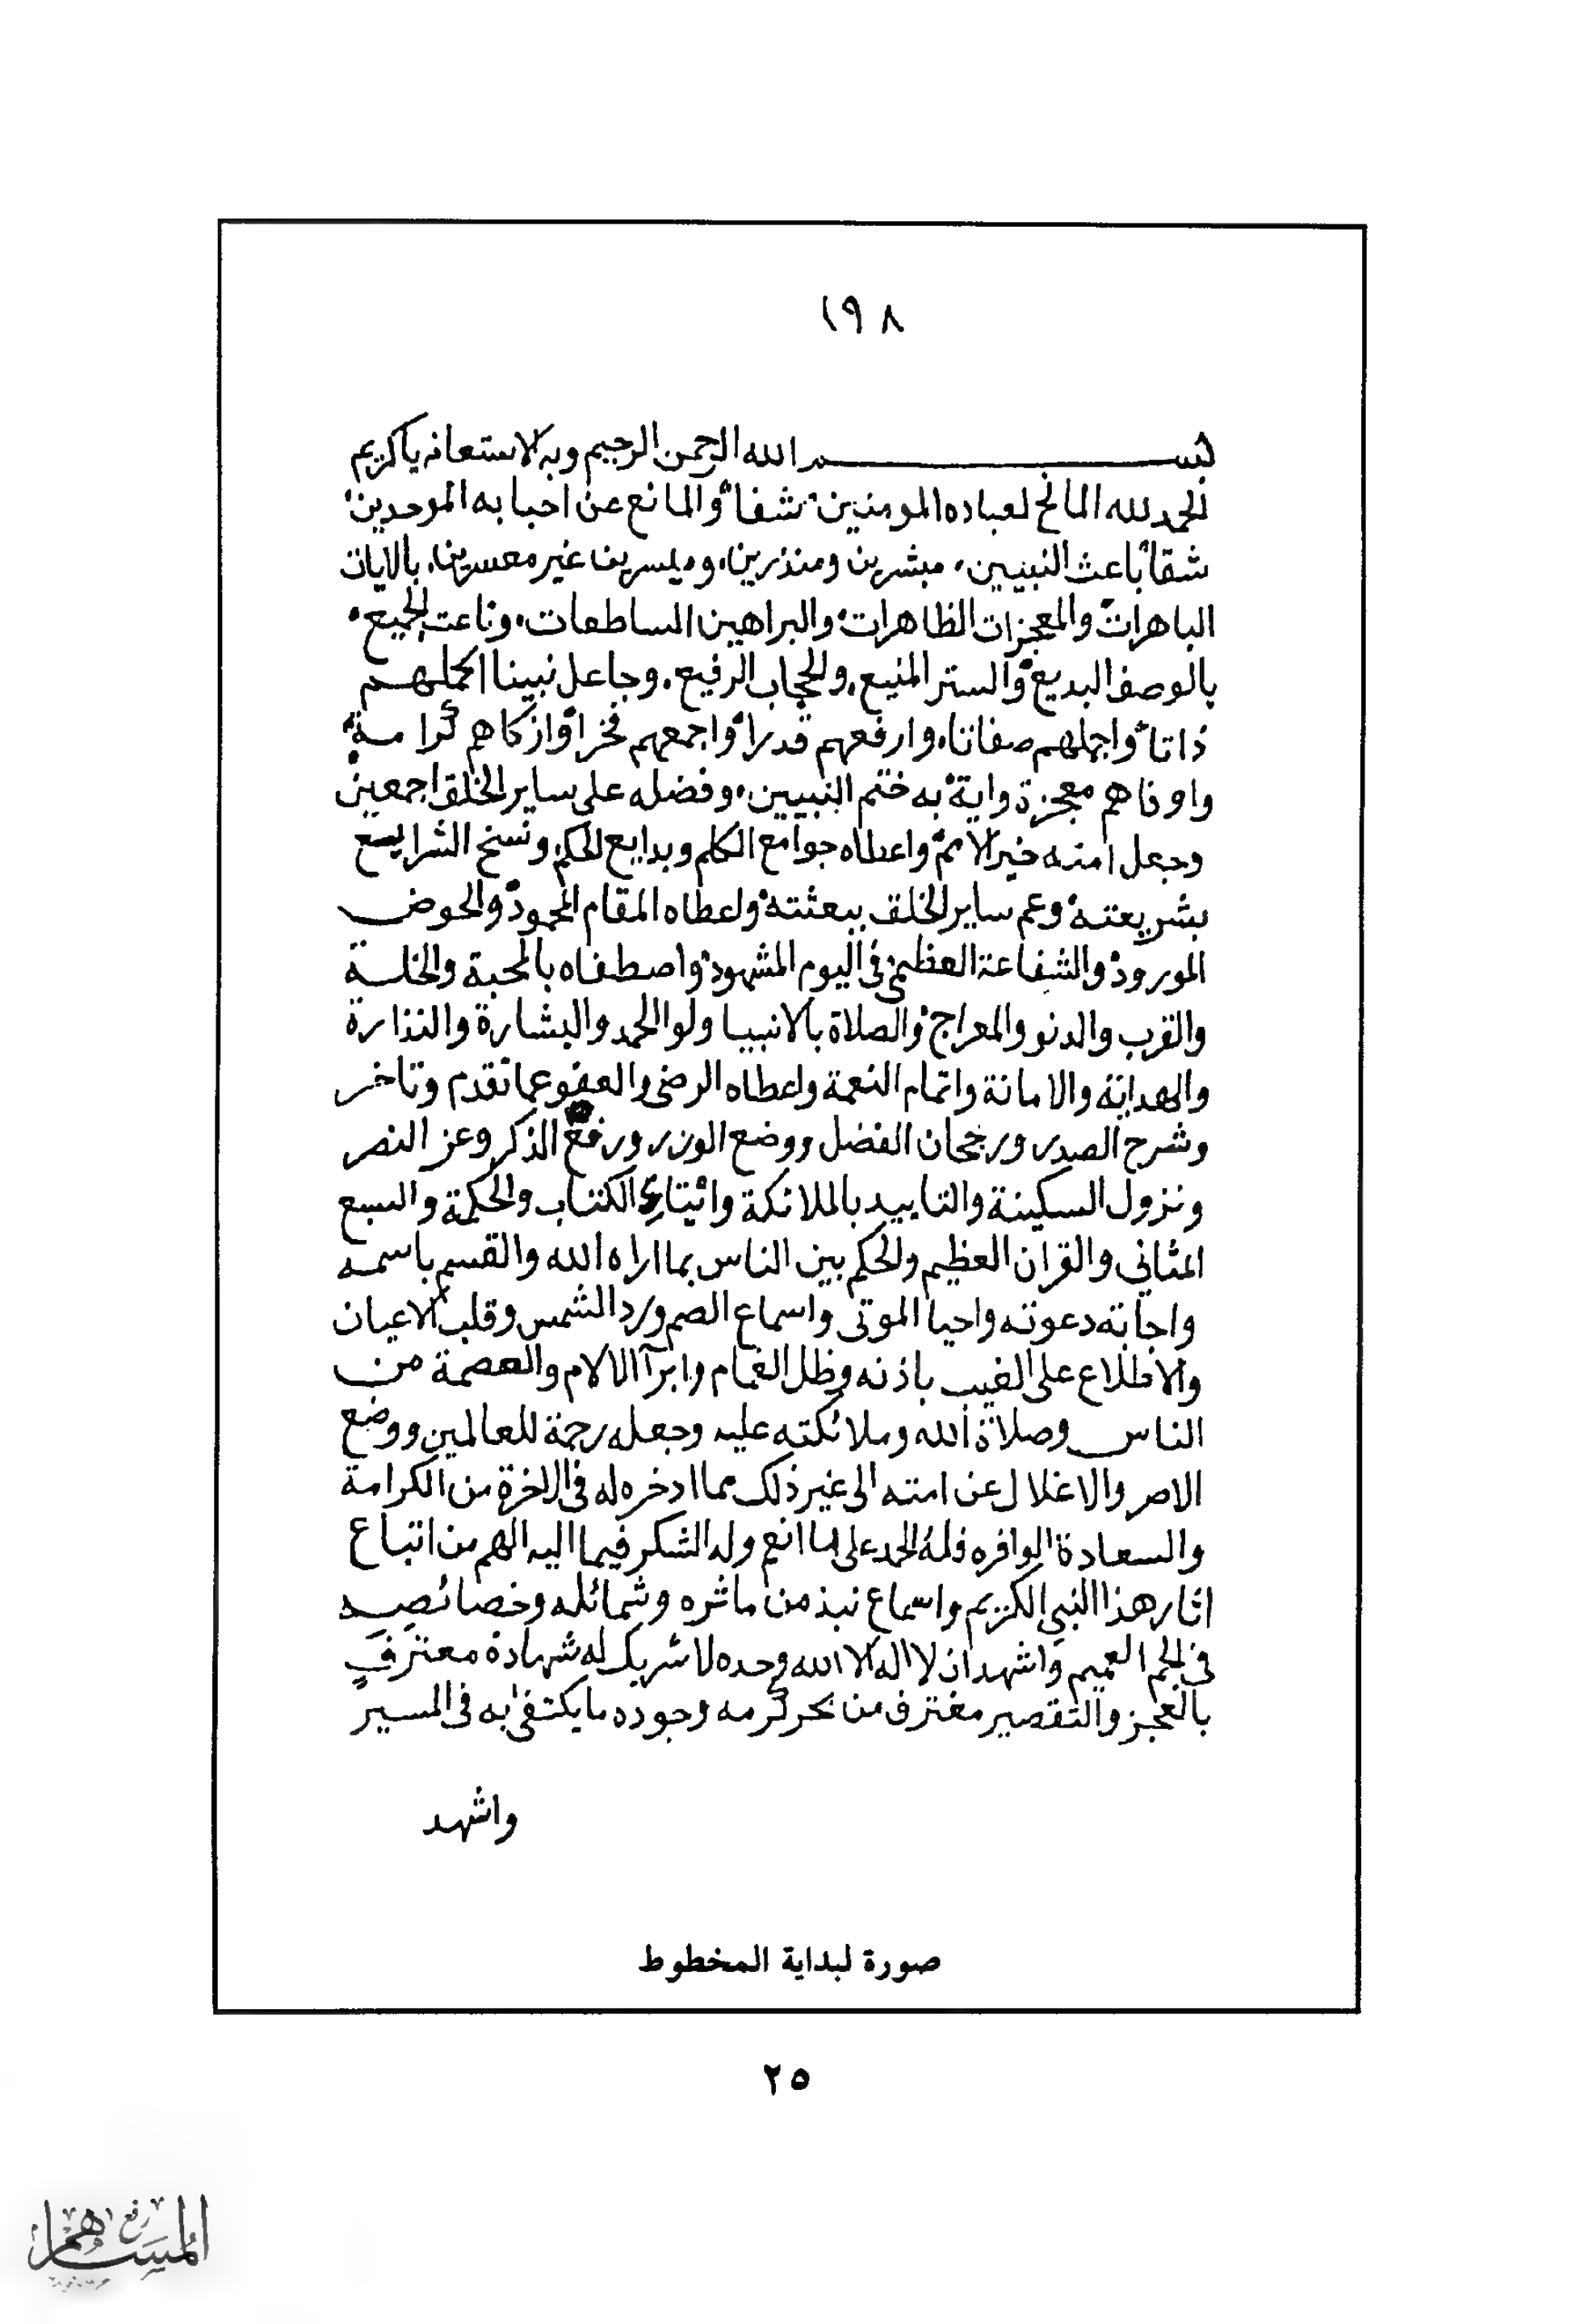 ١٩٨
بسم الله الرحمن الرحيم وبه الاستعانه ياكريم
الحمد لله المانح لعباده المومنين شفاً والمانع عن احبابه الموحدين
شقاً باعث النبيين، مبشرين ومنذرين، وميسرين غير معسرين، بالايات
الباهرات والمعجزات الظاهرات، والبراهين الساطعات، وناعت الجميع،
بالوصف البديع، والستر المنيع، والحجاب الرفيع، وجاعل نبينا اكملهم
ذاتاً واجملهم صفاتا، وارفعهم قدراً واجمعهم فخراً وازكاهم كرامة،
واوفاهم معجزة واية، به ختم النبيين، وفضله على ساير الخلق اجمعين
وجعل امته خير الامم واعطاه جوامع الكلم وبدايع الحكم ونسخ الشرايع
بشريعته وعم ساير الخلق ببعثته واعطاه المقام المحمود والحوض
المورود والشفاعة العظمى في اليوم المشهود واصطفاه بالمحبة والخلة
والقرب والدنو والمعراج والصلاة بالانبيا ولوا الحمد والبشارة والنذارة
والهداية والامانة واتمام النعمة واعطاه الرضى والعفو عما تقدم وتاخر
وشرح الصدر ورجحان الفضل ووضع الوزر ورفع الذكر وعز النصر
ونزول السكينة والتاييد بالملائكة وايتاء الكتاب والحكمة والسبع
المثاني والقران العظيم والحكم بين الناس بما اراه الله والقسم باسمه
واجابة دعوته واحيا الموتى واسماع الصم ورد الشمس وقلب الاعيان
والاطلاع على الغيب باذنه وظل الغمام وابرآ الالام والعصمة من
الناس وصلاة الله وملائكته عليه وجعله رحمة للعالمين ووضع
الاصر والاغلال عن امته الى غير ذلك مما ادخره له في الاخرة من الكرامة
والسعادة الوافره فله الحمد على ما انعم وله الشكر فيما اليه الهم من اتباع
اثار هذا النبي الكريم واسماع نبذ من ماثره وشمائله وخصائصه
في الجم العميم واشهد ان لا اله الا الله وحده لا شريك له شهادة معترف
بالعجز والتقصير مغترف من بحر كرمه وجوده ما يكتفى به في المسير
واشهد
صورة لبداية المخطوط
٢٥